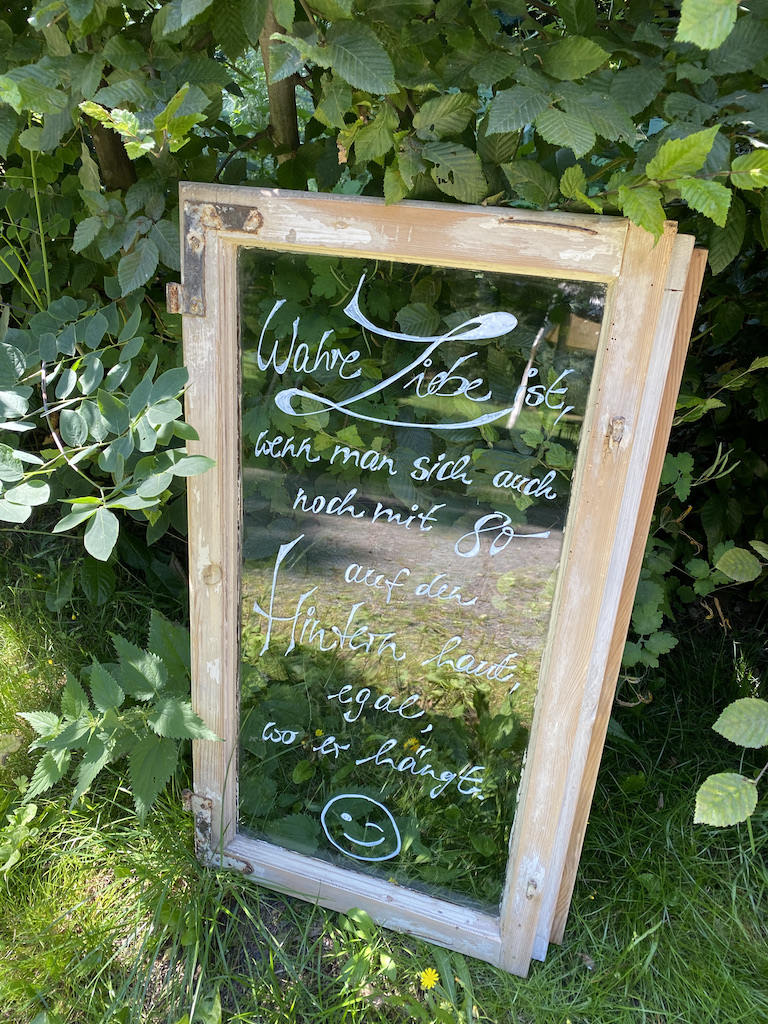 Wahre Liebe ist,
wenn man sich auch
noch mit 80
auf den
Hintern haut,
egal,
wo er hängt.